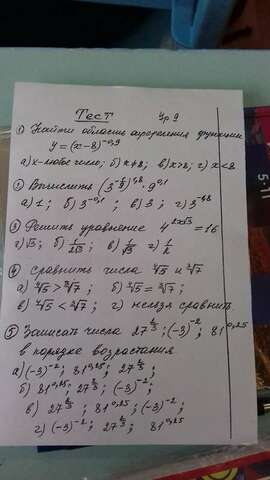 Тест Ур 9
① Найти область определения функции
y=(x-8)^-0,9
а) x-любое число; б) x≠8; в) x>8; г) x<8
② Вычислить (3^-1/9)^1,8 · 9^0,1
а) 1; б) 3^-0,1; в) 3; г) 3^-1,8
③ Решить уравнение 4^2x√3 = 16
а) √3; б) 1/2√3; в) 1/√3 г) 1/2
④ Сравнить числа ⁴√5 и ³√7
а) ⁴√5 > ³√7; б) ⁴√5 = ³√7;
в) ⁴√5 < ³√7; г) нельзя сравнить.
⑤ Записать числа 27^2/3; (-3)^-2; 81^0,25
в порядке возрастания
а) (-3)^-2; 81^0,25; 27^2/3;
б) 81^0,25; 27^2/3; (-3)^-2;
в) 27^2/3; 81^0,25; (-3)^-2;
г) (-3)^-2; 27^2/3; 81^0,25